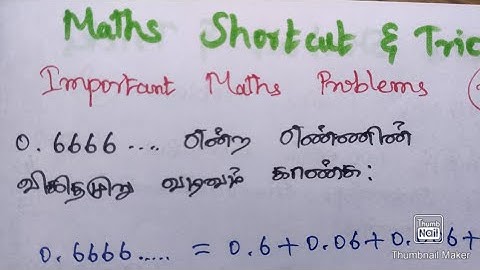 Maths Shortcut & Tric
Important Maths Problems
0.6666.... என்ற எண்ணின்
விகிதமுறு வடிவம் காண்க:
0.6666..... = 0.6+0.06+0. 6+
Thumb
Nail
Thumbnail Maker